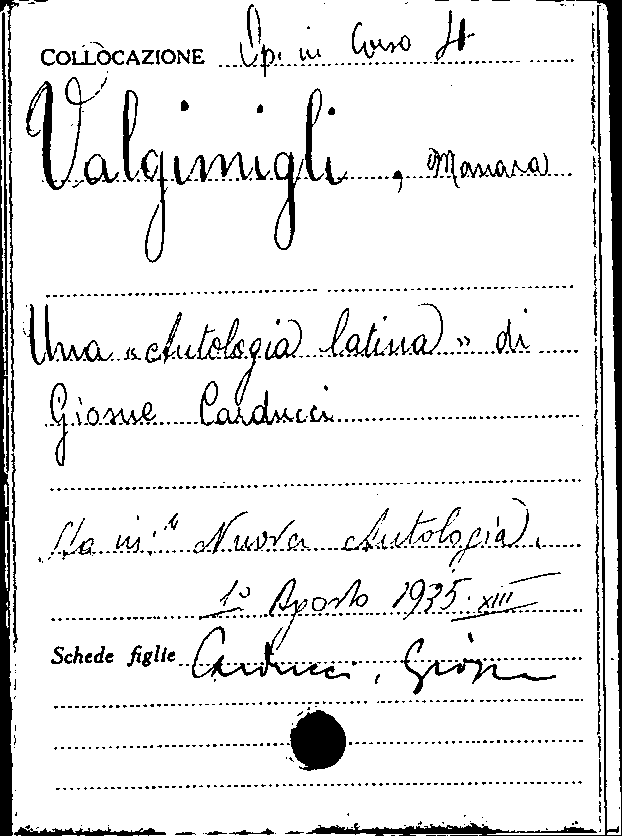 COLLOCAZIONE Op. in Corso 4
Valgimigli, Manara
Una «Antologia latina» di
Giosue Carducci
Sta in: "Nuova Antologia,
1º Agosto 1935. XIII
Schede figlie Carducci, Giosue